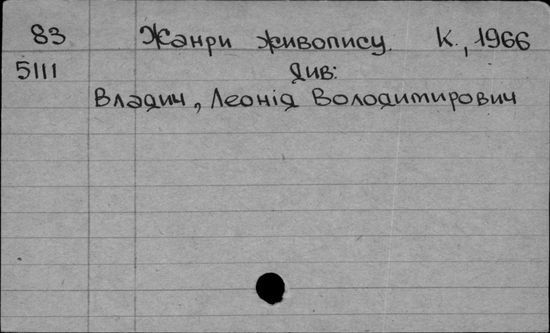 83 Жанри живопису. К., 1966
5111 Див:
Владич, Леонід Володимирович